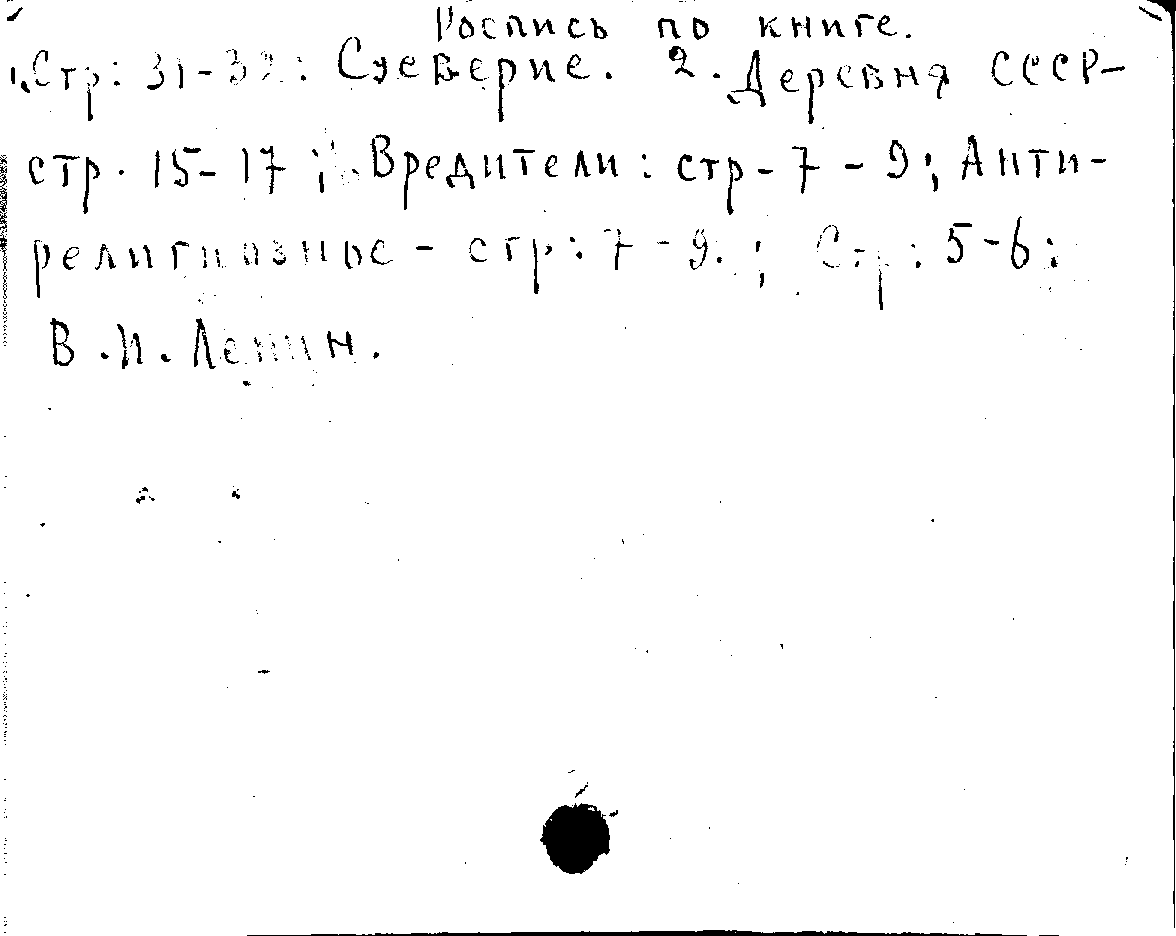 Роспись по книге.
1. Стр: 31-32: Суеверие. 2. Деревня СССР-
стр. 15-17; Вредители: стр- 7 - 9; Анти-
религиозное - стр: 7 - 9.; Стр: 5-6:
В.И. Ленин.